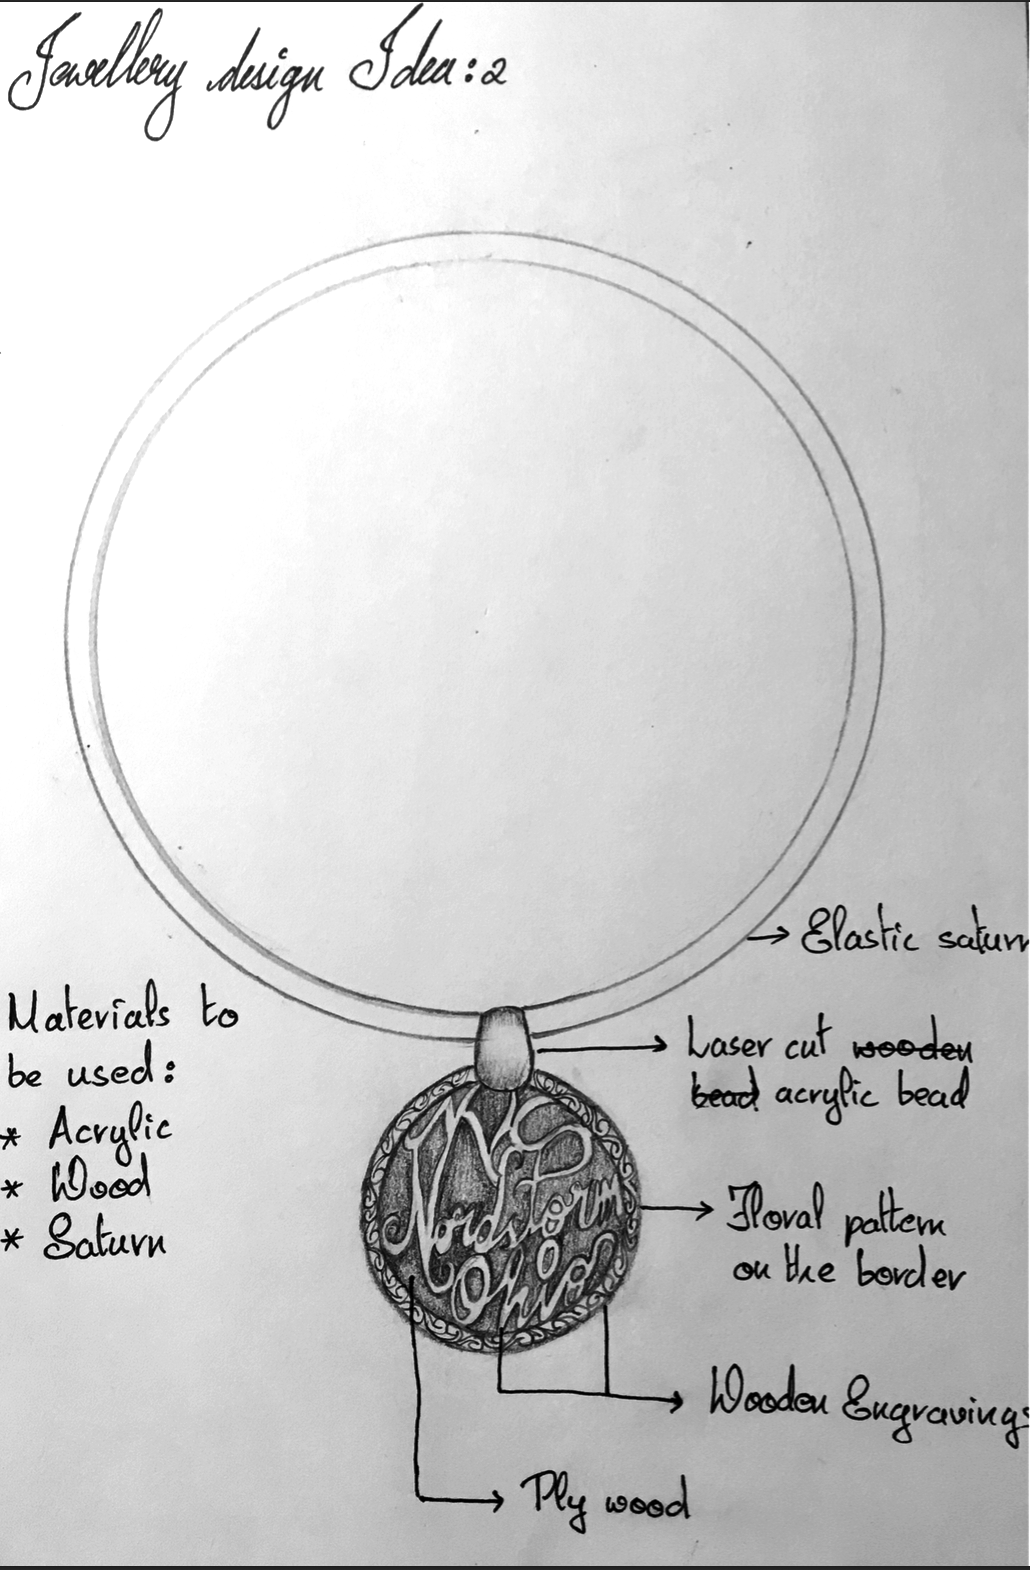 Jewellery design Idea:2
Elastic saturn
Materials to
be used:
* Acrylic
* Wood
* Saturn
Laser cut wooden
bead acrylic bead
Nordstorm
Ohio
Floral pattern
on the border
Wooden Engravings
Ply wood